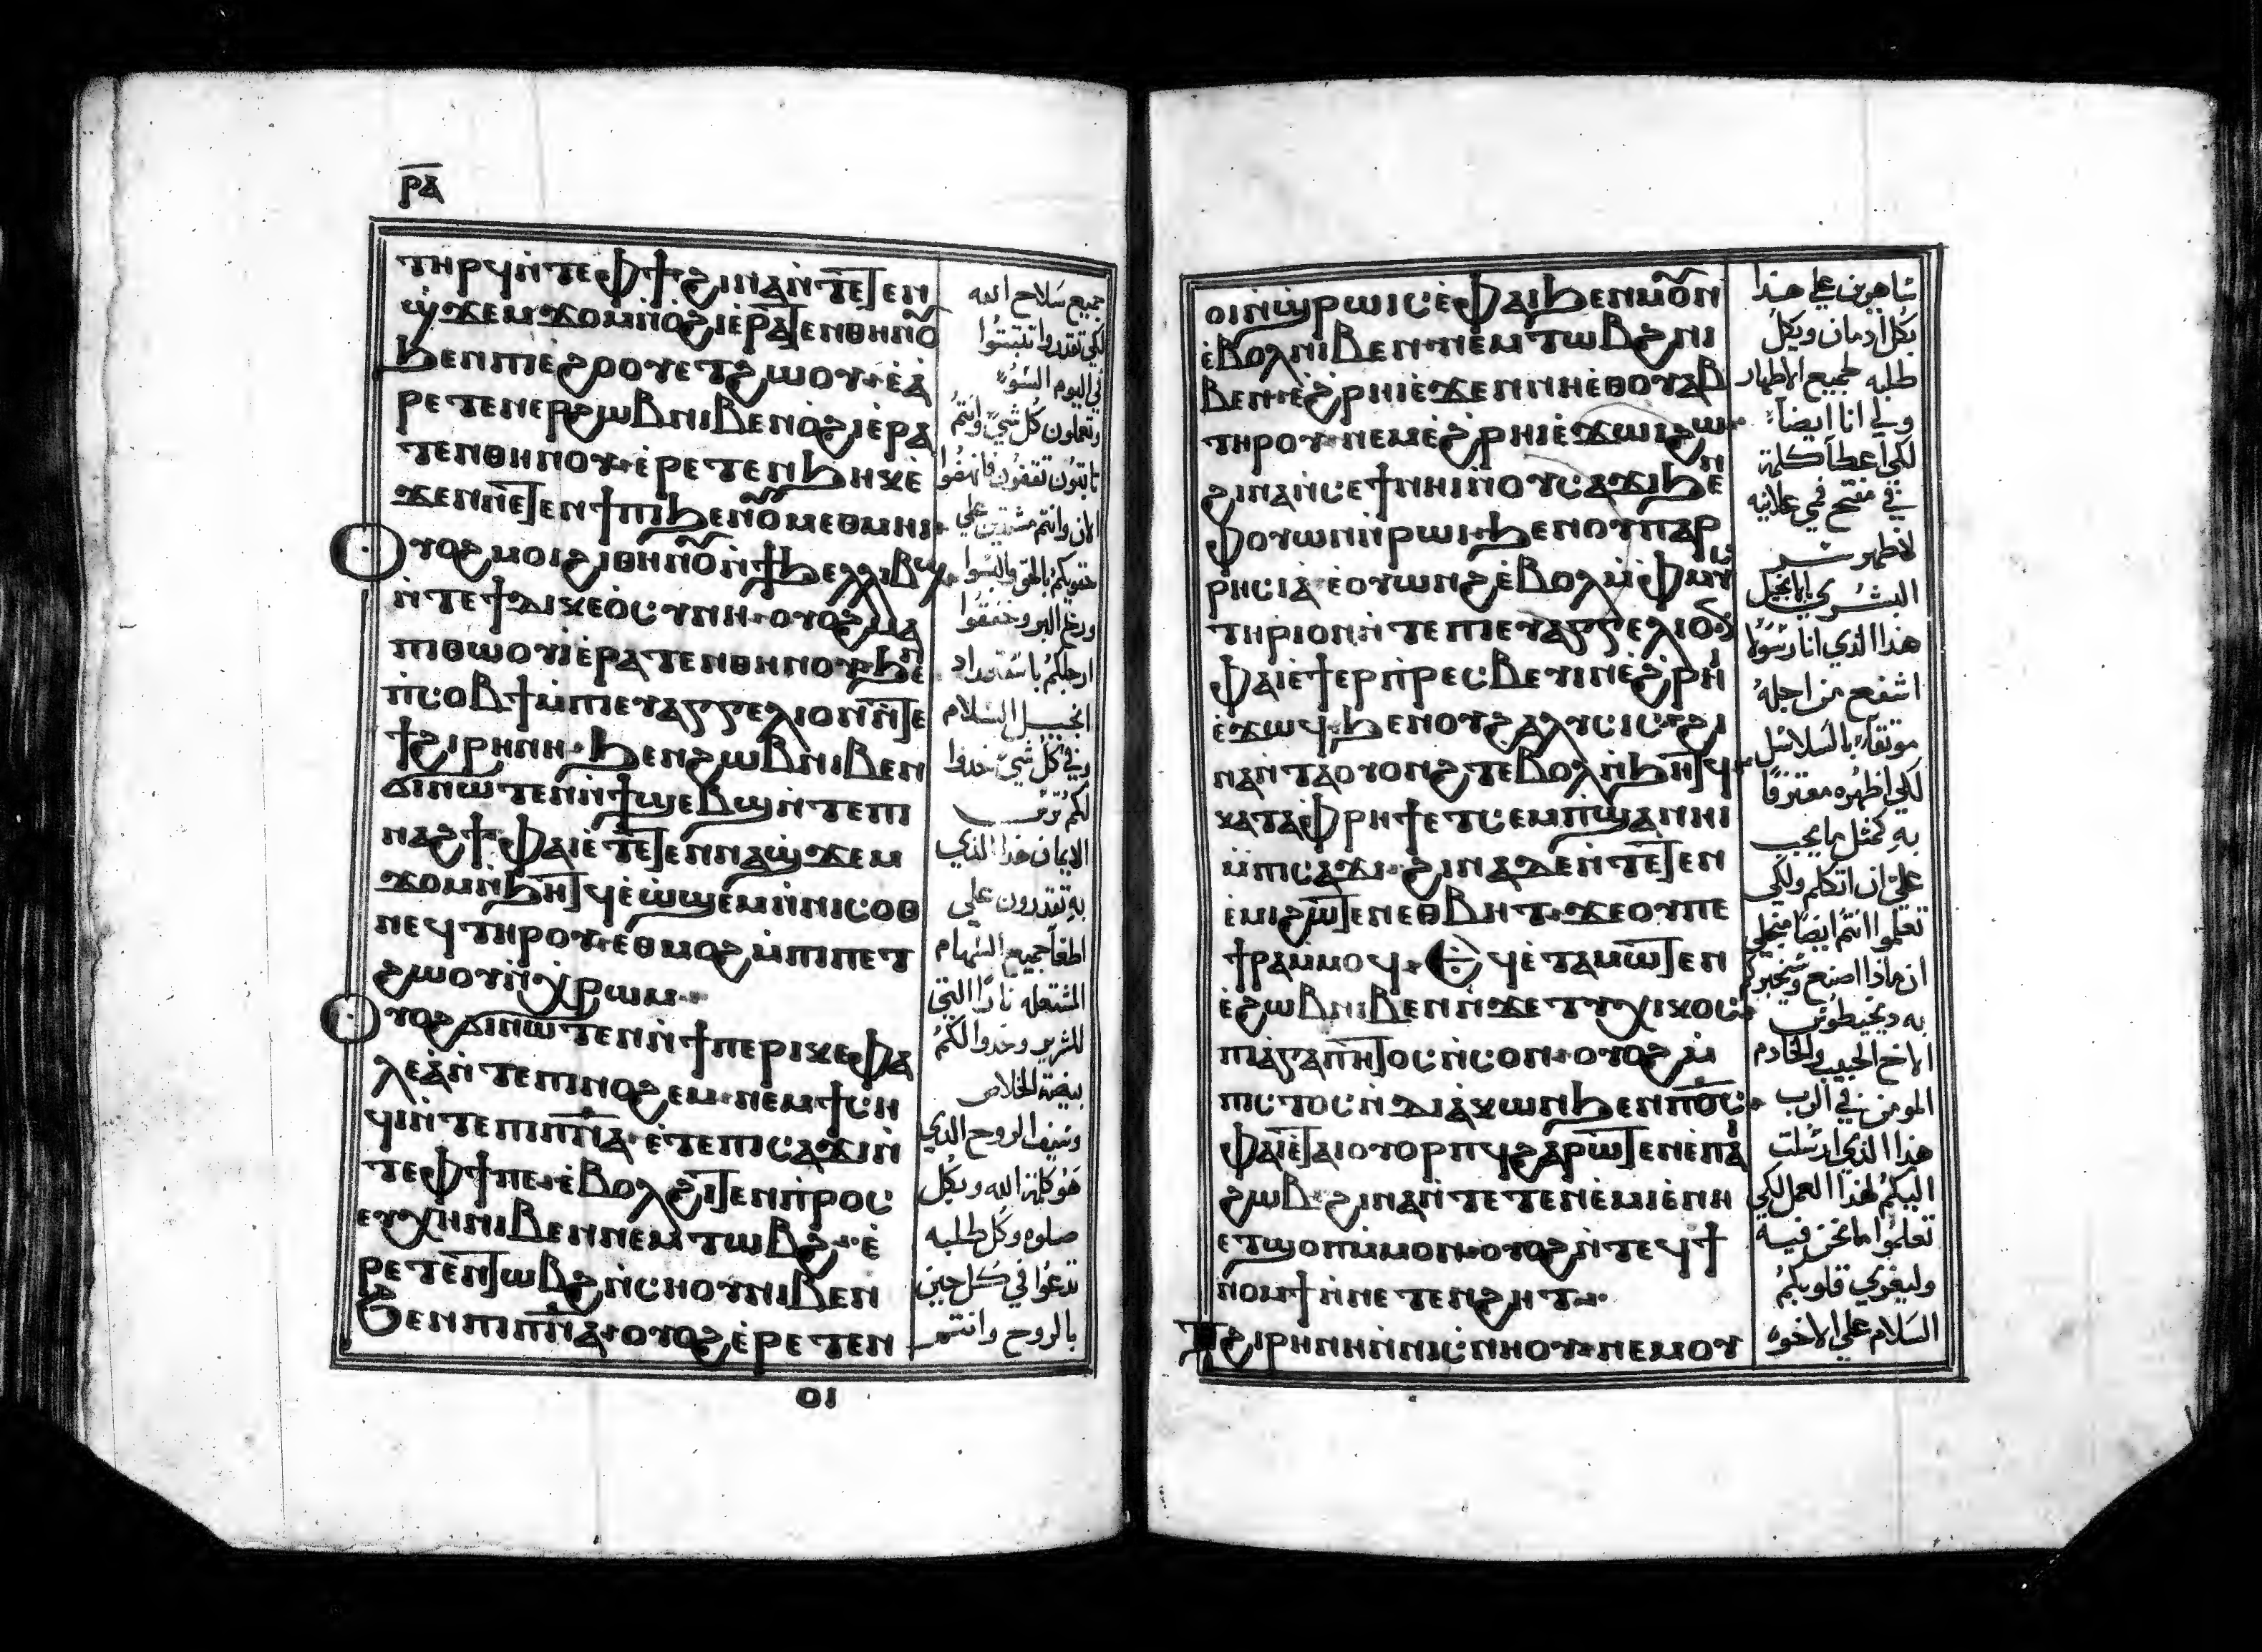 ⲣ̅ⲁ̅
ⲧⲏⲣϥ ⲛ̀ⲧⲉⲫϯ ϩⲓⲛⲁ ⲛ̀ⲧⲉⲧⲉⲛ
ϣ̀ϫⲉⲙϫⲟⲙ ⲛ̀ⲟ̀ϩⲓ ⲉ̀ⲣⲁⲧⲉⲛⲑⲏⲛⲟⲩ
ϧⲉⲛ ⲡⲓⲉ̀ϩⲟⲟⲩ ⲉⲧϩⲱⲟⲩ ⲉ̀ⲁ̀
ⲣⲉⲧⲉⲛⲉⲣϩⲱⲃ ⲛⲓⲃⲉⲛ ⲟ̀ϩⲓ ⲉ̀ⲣⲁ
ⲧⲉⲛⲑⲏⲛⲟⲩ ⲉ̀ⲣⲉⲧⲉⲛϧⲏⲕ ⲉ̀
ϫⲉⲛ ⲛⲉⲧⲉⲛϯⲡⲓ ϧⲉⲛ ⲟⲩⲙⲉⲑⲙⲏⲓ
Ⲟⲩⲟϩ ⲙⲟⲓ ϩⲓⲑⲏⲛⲟⲩ ⲛ̀ϯϧⲉⲗⲗⲓⲃϣ
ⲛ̀ⲧⲉϯⲇⲓⲕⲉⲟ̀ⲥⲩⲛⲏ ⲟⲩⲟϩ ⲙⲁ
ⲡⲓⲑⲱⲟⲩⲓ̀ ⲉ̀ⲣⲁⲧⲉⲛⲑⲏⲛⲟⲩ ϧⲉⲛ
ⲡ̀ⲥⲟⲃϯ ⲙ̀ⲡⲓⲉⲩⲁⲅⲅⲉⲗⲓⲟⲛ ⲛ̀ⲧⲉ
ϯϩⲓⲣⲏⲛⲏ ϧⲉⲛ ϩⲱⲃ ⲛⲓⲃⲉⲛ
ϭⲓ ⲛⲱⲧⲉⲛ ⲛ̀ϯϣⲉⲃϣⲓ ⲛ̀ⲧⲉⲡⲓ
ⲛⲁϩϯ ⲫⲁⲓ ⲉ̀ⲧⲉⲧⲉⲛⲛⲁϣ̀ϫⲉⲙ
ϫⲟⲙ ⲛ̀ϧⲏⲧϥ ⲉ̀ⲱ̀ϣⲉⲙ ⲛ̀ⲛⲓⲥⲟⲑ
ⲛⲉϥ ⲧⲏⲣⲟⲩ ⲉⲑⲙⲟϩ ⲙ̀ⲡⲓⲡⲉⲧ
ϩⲱⲟⲩ ⲛ̀ⲭ̀ⲣⲱⲙ
Ⲟⲩⲟϩ ϭⲓ ⲛⲱⲧⲉⲛ ⲛ̀ϯⲡⲉⲣⲓⲕⲉⲫⲁ
ⲗⲉⲁ̀ ⲛ̀ⲧⲉⲡⲓⲛⲟϩⲉⲙ ⲛⲉⲙ ϯⲥⲏ
ϥⲓ ⲛ̀ⲧⲉⲡⲓⲡ̅ⲛ̅ⲁ̅ ⲉ̀ⲧⲉⲡⲓⲥⲁϫⲓ ⲛ̀
ⲧⲉⲫϯ ⲡⲉ ⲉ̀ⲃⲟⲗϩⲓⲧⲉⲛ ⲡ̀ⲣⲟⲥ
ⲉⲩⲭⲏ ⲛⲓⲃⲉⲛ ⲛⲉⲙ ⲧⲱⲃϩ ⲉ̀
ⲣⲉⲧⲉⲛⲧⲱⲃϩ ⲛ̀ⲥⲏⲟⲩ ⲛⲓⲃⲉⲛ
ϧⲉⲛ ⲡⲓⲡ̅ⲛ̅ⲁ̅ ⲟⲩⲟϩ ⲉ̀ⲣⲉⲧⲉⲛ
ⲟⲓ
جميع سلاح الله
لكي تقدروا تثبتوا
في اليوم السوء
وتعملون كل شيء وانتم
ثابتون تقفون فانهضوا
الان وانتم مشتدين علي
حقويكم بالحق والبسوا
درع البر وخففوا
ارجلكم باستعداد
انجيل السلام
وفي كل شيء خذوا
لكم ترس
الايمان هذا الذي
به تقدرون علي
اطفا جميع السهام
المشتعله نارًا التي
للشرير وخذوا لكم
بيضة الخلاص
وسيف الروح الذي
هو كلمة الله وبكل
صلوه وكل طلبه
تدعوا في كل حين
بالروح وانتم
ⲟⲓ ⲛ̀ϣ̀ⲣⲱⲓⲥ ⲉ̀ⲫⲁⲓ ϧⲉⲛ ⲙⲟⲩⲛ
ⲉ̀ⲃⲟⲗ ⲛⲓⲃⲉⲛ ⲛⲉⲙ ⲧⲱⲃϩ ⲛⲓ
ⲃⲉⲛ ⲉ̀ϩ̀ⲣⲏⲓ ⲉ̀ϫⲉⲛ ⲛⲏⲉ̀ⲑⲟⲩⲁⲃ
ⲧⲏⲣⲟⲩ ⲛⲉⲙ ⲉ̀ϩ̀ⲣⲏⲓ ⲉ̀ϫⲱⲓ ϩⲱ
ϩⲓⲛⲁ ⲛ̀ⲥⲉϯ ⲛⲏⲓ ⲛ̀ⲟⲩⲥⲁϫⲓ ϧⲉⲛ
ⲫⲟⲩⲱⲛ ⲛ̀ⲣⲱⲓ ϧⲉⲛ ⲟⲩⲡⲁⲣ
ⲣⲏⲥⲓⲁ̀ ⲉ̀ⲟⲩⲱⲛϩ ⲉ̀ⲃⲟⲗ ⲙ̀ⲫⲙⲩⲥ
ⲧⲏⲣⲓⲟⲛ ⲛ̀ⲧⲉⲡⲓⲉⲩⲁⲅⲅⲉⲗⲓⲟⲛ
ⲫⲁⲓ ⲉ̀ϯⲉⲣⲡ̀ⲣⲉⲥⲃⲉⲩⲓⲛ ⲉ̀ϩ̀ⲣⲏⲓ
ⲉ̀ϫⲱϥ ϧⲉⲛ ⲟⲩϩⲁⲗⲩⲥⲓⲥ ϩⲓ
ⲛⲁ ⲛ̀ⲧⲁⲟⲩⲟⲛϩⲧ ⲉ̀ⲃⲟⲗ ⲛ̀ϧⲏⲧϥ
ⲕⲁⲧⲁ ⲫⲣⲏϯ ⲉⲧⲥⲉⲙⲡ̀ϣⲁ ⲛⲏⲓ
ⲙ̀ⲡⲥⲁϫⲓ ϩⲓⲛⲁ ϫⲉ ⲛ̀ⲧⲉⲧⲉⲛ
ⲉ̀ⲙⲓ ϩⲱⲧⲉⲛ ⲉⲑⲃⲏⲧ ϫⲉ ⲟⲩ ⲡⲉ
ϯⲣⲁ ⲙ̀ⲙⲟϥ Ⲉϥⲉ̀ⲧⲁⲙⲱⲧⲉⲛ
ⲉ̀ϩⲱⲃ ⲛⲓⲃⲉⲛ ⲛ̀ϫⲉ ⲧⲩⲭⲓⲕⲟⲥ
ⲡⲓⲁ̀ⲅⲁⲡⲏⲧⲟⲥ ⲛ̀ⲥⲟⲛ ⲟⲩⲟϩ ⲙ̀
ⲡⲓⲥⲧⲟⲥ ⲛ̀ⲇⲓⲁ̀ⲕⲱⲛ ϧⲉⲛ ⲡ̅ⲟ̅ⲥ̅
ⲫⲁⲓ ⲉ̀ⲧⲁⲓⲟⲩⲟⲣⲡϥ ϩⲁⲣⲱⲧⲉⲛ ⲉ̀ⲡⲁⲓ
ϩⲱⲃ ϩⲓⲛⲁ ⲛ̀ⲧⲉⲧⲉⲛⲉ̀ⲙⲓ ⲉ̀ⲛⲏ
ⲉⲧϣⲟⲡ ⲙ̀ⲙⲟⲛ ⲟⲩⲟϩ ⲛ̀ⲧⲉϥϯ
ⲛⲟⲙϯ ⲛ̀ⲛⲉⲧⲉⲛϩⲏⲧ
Ⲧϩⲓⲣⲏⲛⲏ ⲛ̀ⲛⲓⲥ̀ⲛⲏⲟⲩ ⲛⲉⲙ ⲟⲩ
ساهرين علي هذا
بكل ادمان وبكل
طلبه لجميع الاطهار
ولي انا ايضا
لكي اعطا كلمة
في مفتح فمي علانيه
لاظهر سر
البشري بالانجيل
هذا الذي انا رسولا
اشفع من اجله
موثقا بالسلاسل
لكي اظهره معترفا
به كمثل ما يجب
علي ان اتكلم ولكي
تعلموا انتم ايضا
ان ماذا اصنع وسيخبركم
به ديخيطوس
الاخ الحبيب والخادم
المومن في الرب
هذا الذي ارسلت
اليكم لهذا العمل لكي
تعلموا ما نحن فيه
وليعزي قلوبكم
السلام علي الاخوه